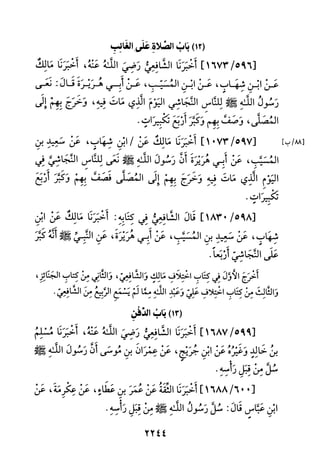 (١٢) بَابُ الصَّلاةِ عَلَى الغَائِبِ
[١٦٧٣/٥٩٦] أَخْبَرَنَا الشَّافِعِيُّ رَضِيَ اللَّهُ عَنْهُ، أَخْبَرَنَا مَالِكٌ
عَـنْ ابْـنِ شِهَـابٍ، عَـنْ ابْـنِ المُسَيَّـبِ، عَـنْ أَبِـي هُـرَيْـرَةَ قَـالَ: نَعَـى
رَسُولُ اللَّهِ ﷺ لِلنَّاسِ النَّجَاشِي اليَوْمَ الَّذِي مَاتَ فِيهِ، وَخَرَجَ بِهِم إِلَى
المُصَلَّى، وَصَفَّ بِهِم وَكَبَّرَ أَرْبَعَ تَكْبِيرَاتٍ.
[١٠٧٣/٥٩٧] أَخْبَرَنَا مَالِكٌ عَنْ / ابْنِ شِهَابٍ، عَنْ سَعِيدِ بنِ
[٨٨/ب]
المُسَيَّبِ، عَنْ أَبِي هُرَيْرَةَ أَنَّ رَسُولَ اللَّهِ ﷺ نَعَى لِلنَّاسِ النَّجَاشِيَّ فِي
اليَوْمِ الَّذِي مَاتَ فِيهِ وَخَرَجَ بِهِمْ إِلَى المُصَلَّى فَصَفَّ بِهِمْ وَكَبَّرَ أَرْبَعَ
تَكْبِيرَاتٍ.
[١٨٣٠/٥٩٨] قَالَ الشَّافِعِيُّ فِي كِتَابِهِ: أَخْبَرَنَا مَالِكٌ عَنْ ابْنِ
شِهَابٍ، عَنْ سَعِيدِ بنِ المُسَيَّبِ، عَنْ أَبِي هُرَيْرَةَ، عَنِ النَّبِيِّ ﷺ أَنَّهُ كَبَّرَ
عَلَى النَّجَاشِيِّ أَرْبَعاً.
أَخْرَجَ الأَوَّلَ فِي كِتَابِ اخْتِلَافِ مَالِكٍ وَالشَّافِعِيِّ، وَالثَّانِي مِنْ كِتَابِ الجَنَائِزِ،
وَالثَّالِثَ مِنْ كِتَابِ اخْتِلَافِ عَلِيٍّ وَعَبْدِ اللَّهِ مِمَّا لَمْ يَسْمَعِ الرَّبِيعُ مِنَ الشَّافِعِيِّ.
(١٣) بَابُ الدَّفْنِ
[١٦٨٧/٥٩٩] أَخْبَرَنَا الشَّافِعِيُّ رَضِيَ اللَّهُ عَنْهُ، أَخْبَرَنَا مُسْلِمُ
بنُ خَالِدٍ وَغَيْرُهُ عَنْ ابْنِ جُرَيْجٍ، عَنْ عِمْرَانَ بنِ مُوسَى أَنَّ رَسُولَ اللَّهِ ﷺ
سُلَّ مِنْ قِبَلِ رَأْسِهِ.
[١٦٨٨/٦٠٠] أَخْبَرَنَا الثِّقَةُ عَنْ عُمَرَ بنِ عَطَاءٍ، عَنْ عِكْرِمَةَ، عَنْ
ابْنِ عَبَّاسٍ قَالَ: سُلَّ رَسُولُ اللَّهِ ﷺ مِنْ قِبَلِ رَأْسِهِ.
٢٢٤٤